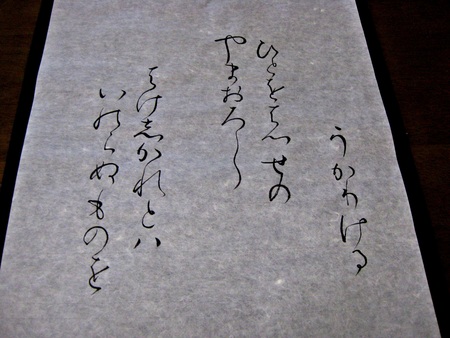 うかりける
ひとをはつせの
やまおろし
はけしかれとハ
いのらぬものを